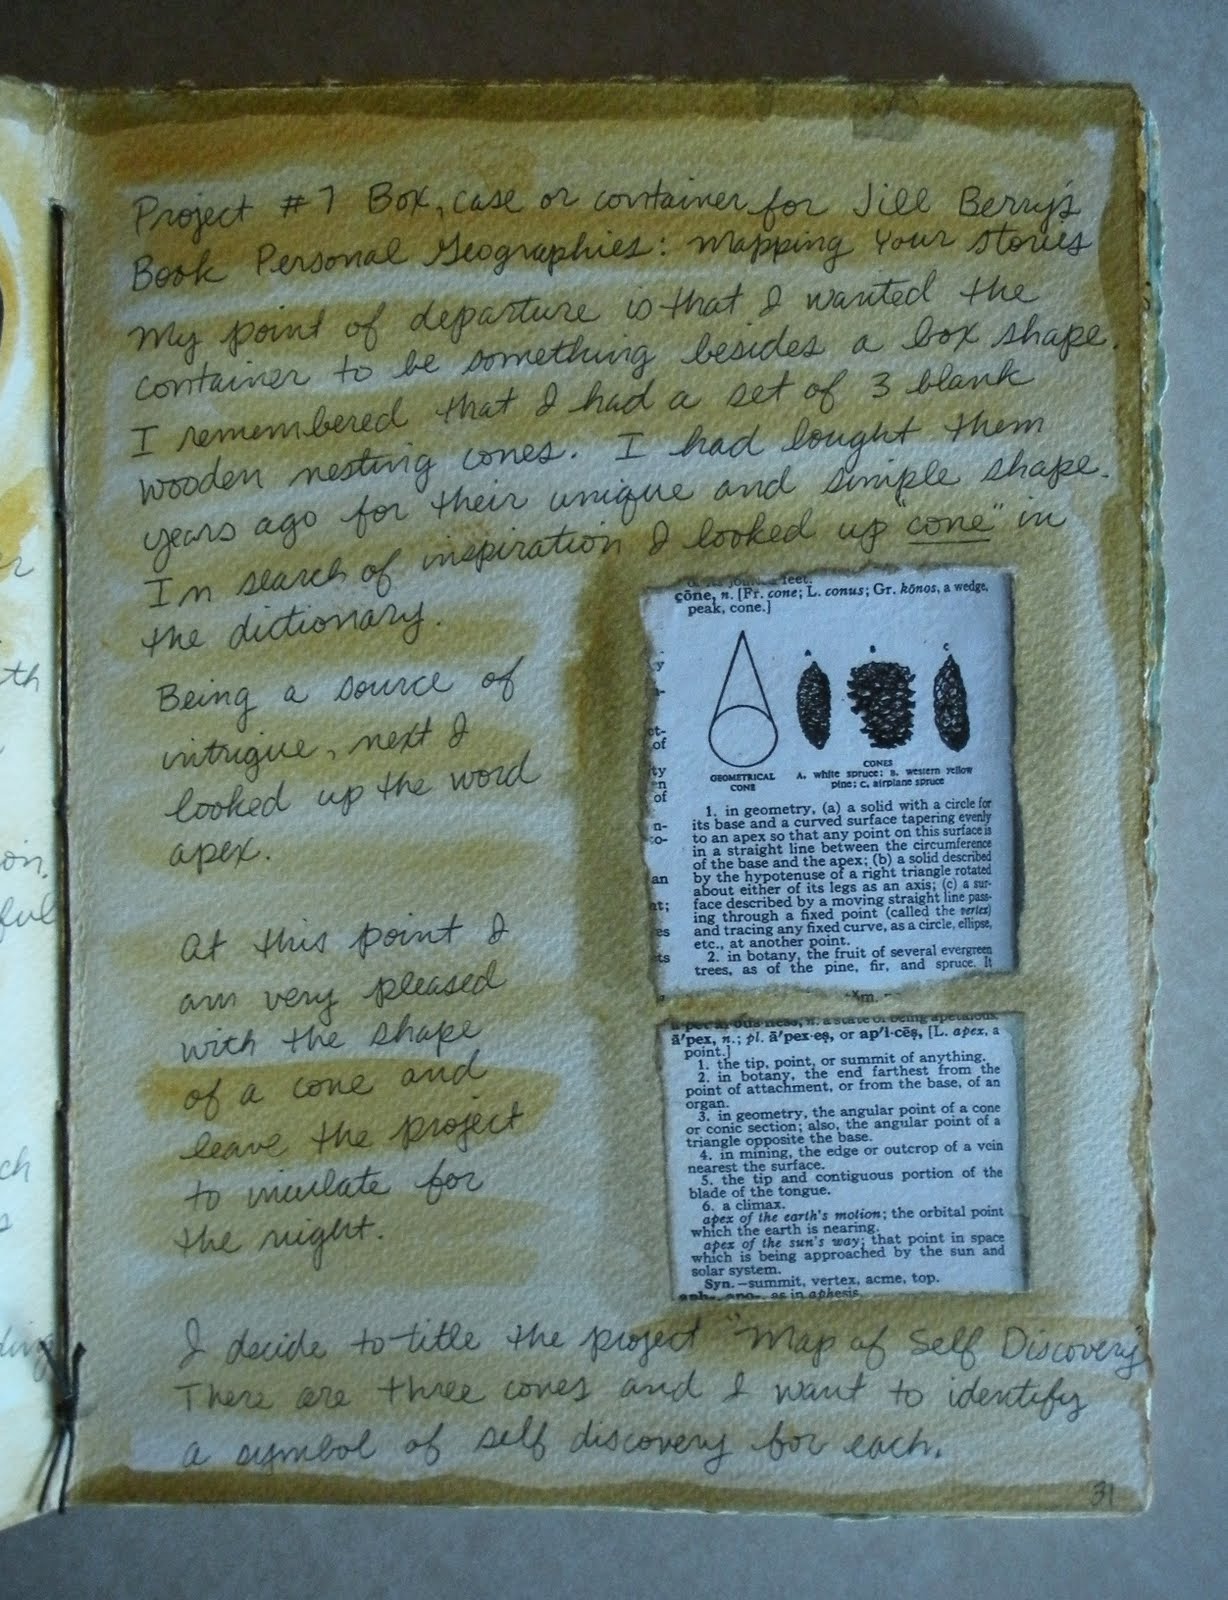 Project #7 Box, case or container for Jill Berry's
Book Personal Geographies: Mapping Your Stories
My point of departure is that I wanted the
container to be something besides a box shape.
I remembered that I had a set of 3 blank
wooden nesting cones. I had bought them
years ago for their unique and simple shape.
In search of inspiration I looked up "cone" in
the dictionary.
Being a source of
intrigue, next I
looked up the word
apex.
At this point I
am very pleased
with the shape
of a cone and
leave the project
to inculate for
the night.
feet.
cōne, n. [Fr. cone; L. conus; Gr. kōnos, a wedge,
peak, cone.]
A
B
C
GEOMETRICAL
CONE
CONES
A. white spruce; B. western yellow
pine; C. airplane spruce
1. in geometry, (a) a solid with a circle for
its base and a curved surface tapering evenly
to an apex so that any point on this surface is
in a straight line between the circumference
of the base and the apex; (b) a solid described
by the hypotenuse of a right triangle rotated
about either of its legs as an axis; (c) a sur-
face described by a moving straight line pass-
ing through a fixed point (called the vertex)
and tracing any fixed curve, as a circle, ellipse,
etc., at another point.
2. in botany, the fruit of several evergreen
trees, as of the pine, fir, and spruce. It
n. a state of being apetalous.
ā'pex, n.; pl. ā'pex·eş, or ap'i·cēş, [L. apex, a
point.]
1. the tip, point, or summit of anything.
2. in botany, the end farthest from the
point of attachment, or from the base, of an
organ.
3. in geometry, the angular point of a cone
or conic section; also, the angular point of a
triangle opposite the base.
4. in mining, the edge or outcrop of a vein
nearest the surface.
5. the tip and contiguous portion of the
blade of the tongue.
6. a climax.
apex of the earth's motion; the orbital point
which the earth is nearing.
apex of the sun's way; that point in space
which is being approached by the sun and
solar system.
Syn.—summit, vertex, acme, top.
aph-, apo-, as in aphesis.
I decide to title the project "Map of Self Discovery"
There are three cones and I want to identify
a symbol of self discovery for each.
31